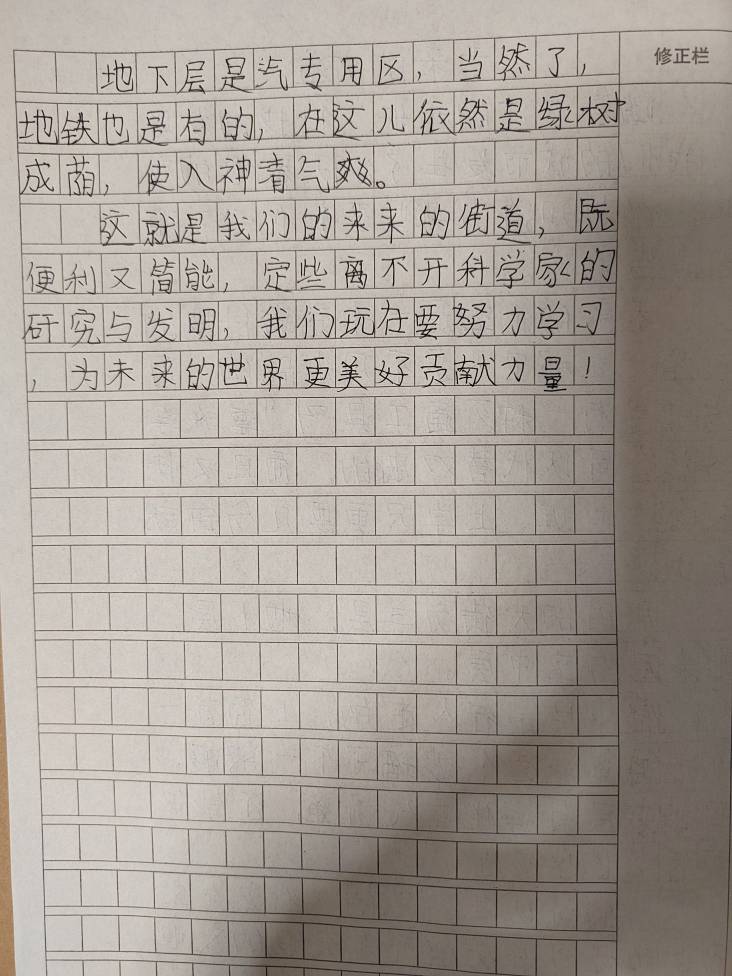 地下层是汽专用区，当然了，
修正栏
地铁也是有的，在这儿依然是绿树
成荫，使入神清气爽。
这就是我们的来来的街道，既
便利又简能，定些离不开科学家的
研究与发明，我们玩在要努力学习
，为未来的世界更美好贡献力量！